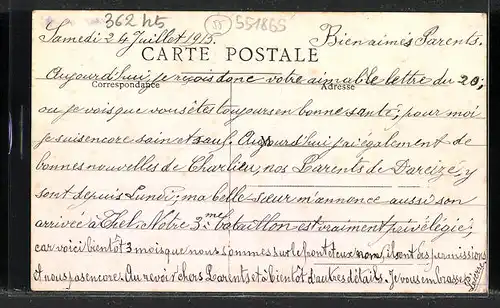 362 h5
551865
Samedi 24 Juillet 1915. Bien aimés Parents.
CARTE POSTALE
Aujourd'hui je reçois donc votre aimable lettre du 20;
Correspondance Adresse
ou je vois que vous êtes toujours en bonne santé; pour moi
je suis encore sain et sauf. Aujourd'hui j'ai également de
bonnes nouvelles de Charlieu; nos Parents de Dareizé, y
sont depuis Lundi; ma belle-sœur m'annonce aussi son
arrivée à Thel. Notre 3me bataillon est vraiment privélégié;
car voici bientôt 3 mois que nous sommes sur le front et eux non, ils ont les permissions
et nous pas encore. Au revoir chers Parents et à bientôt d'autres détails. Je vous embrasse